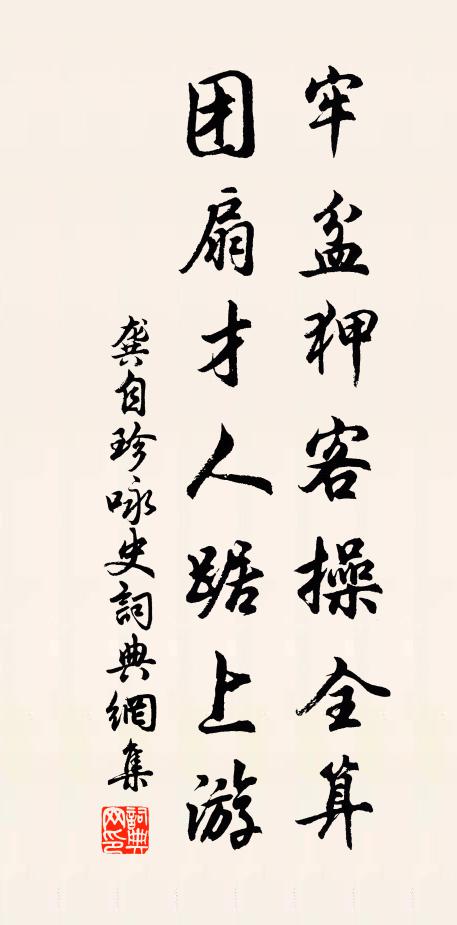 牢盆狎客操全算
团扇才人踞上游
龚自珍咏史詞典網集
詞典網印